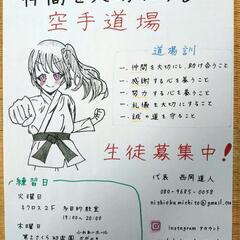 仲間を大切にする
空手道場
道場訓
一、仲間を大切にし、助け合うこと
一、感謝する心を養うこと
一、努力する心を養うこと
一、礼儀を大切にすること
一、誠の道を守ること
生徒募集中!
代表 西岡道人
080-9685-0058
練習日
火曜日
ネクロス2F 多目的教室
19:00〜20:00
木曜日
Instagram アカウント